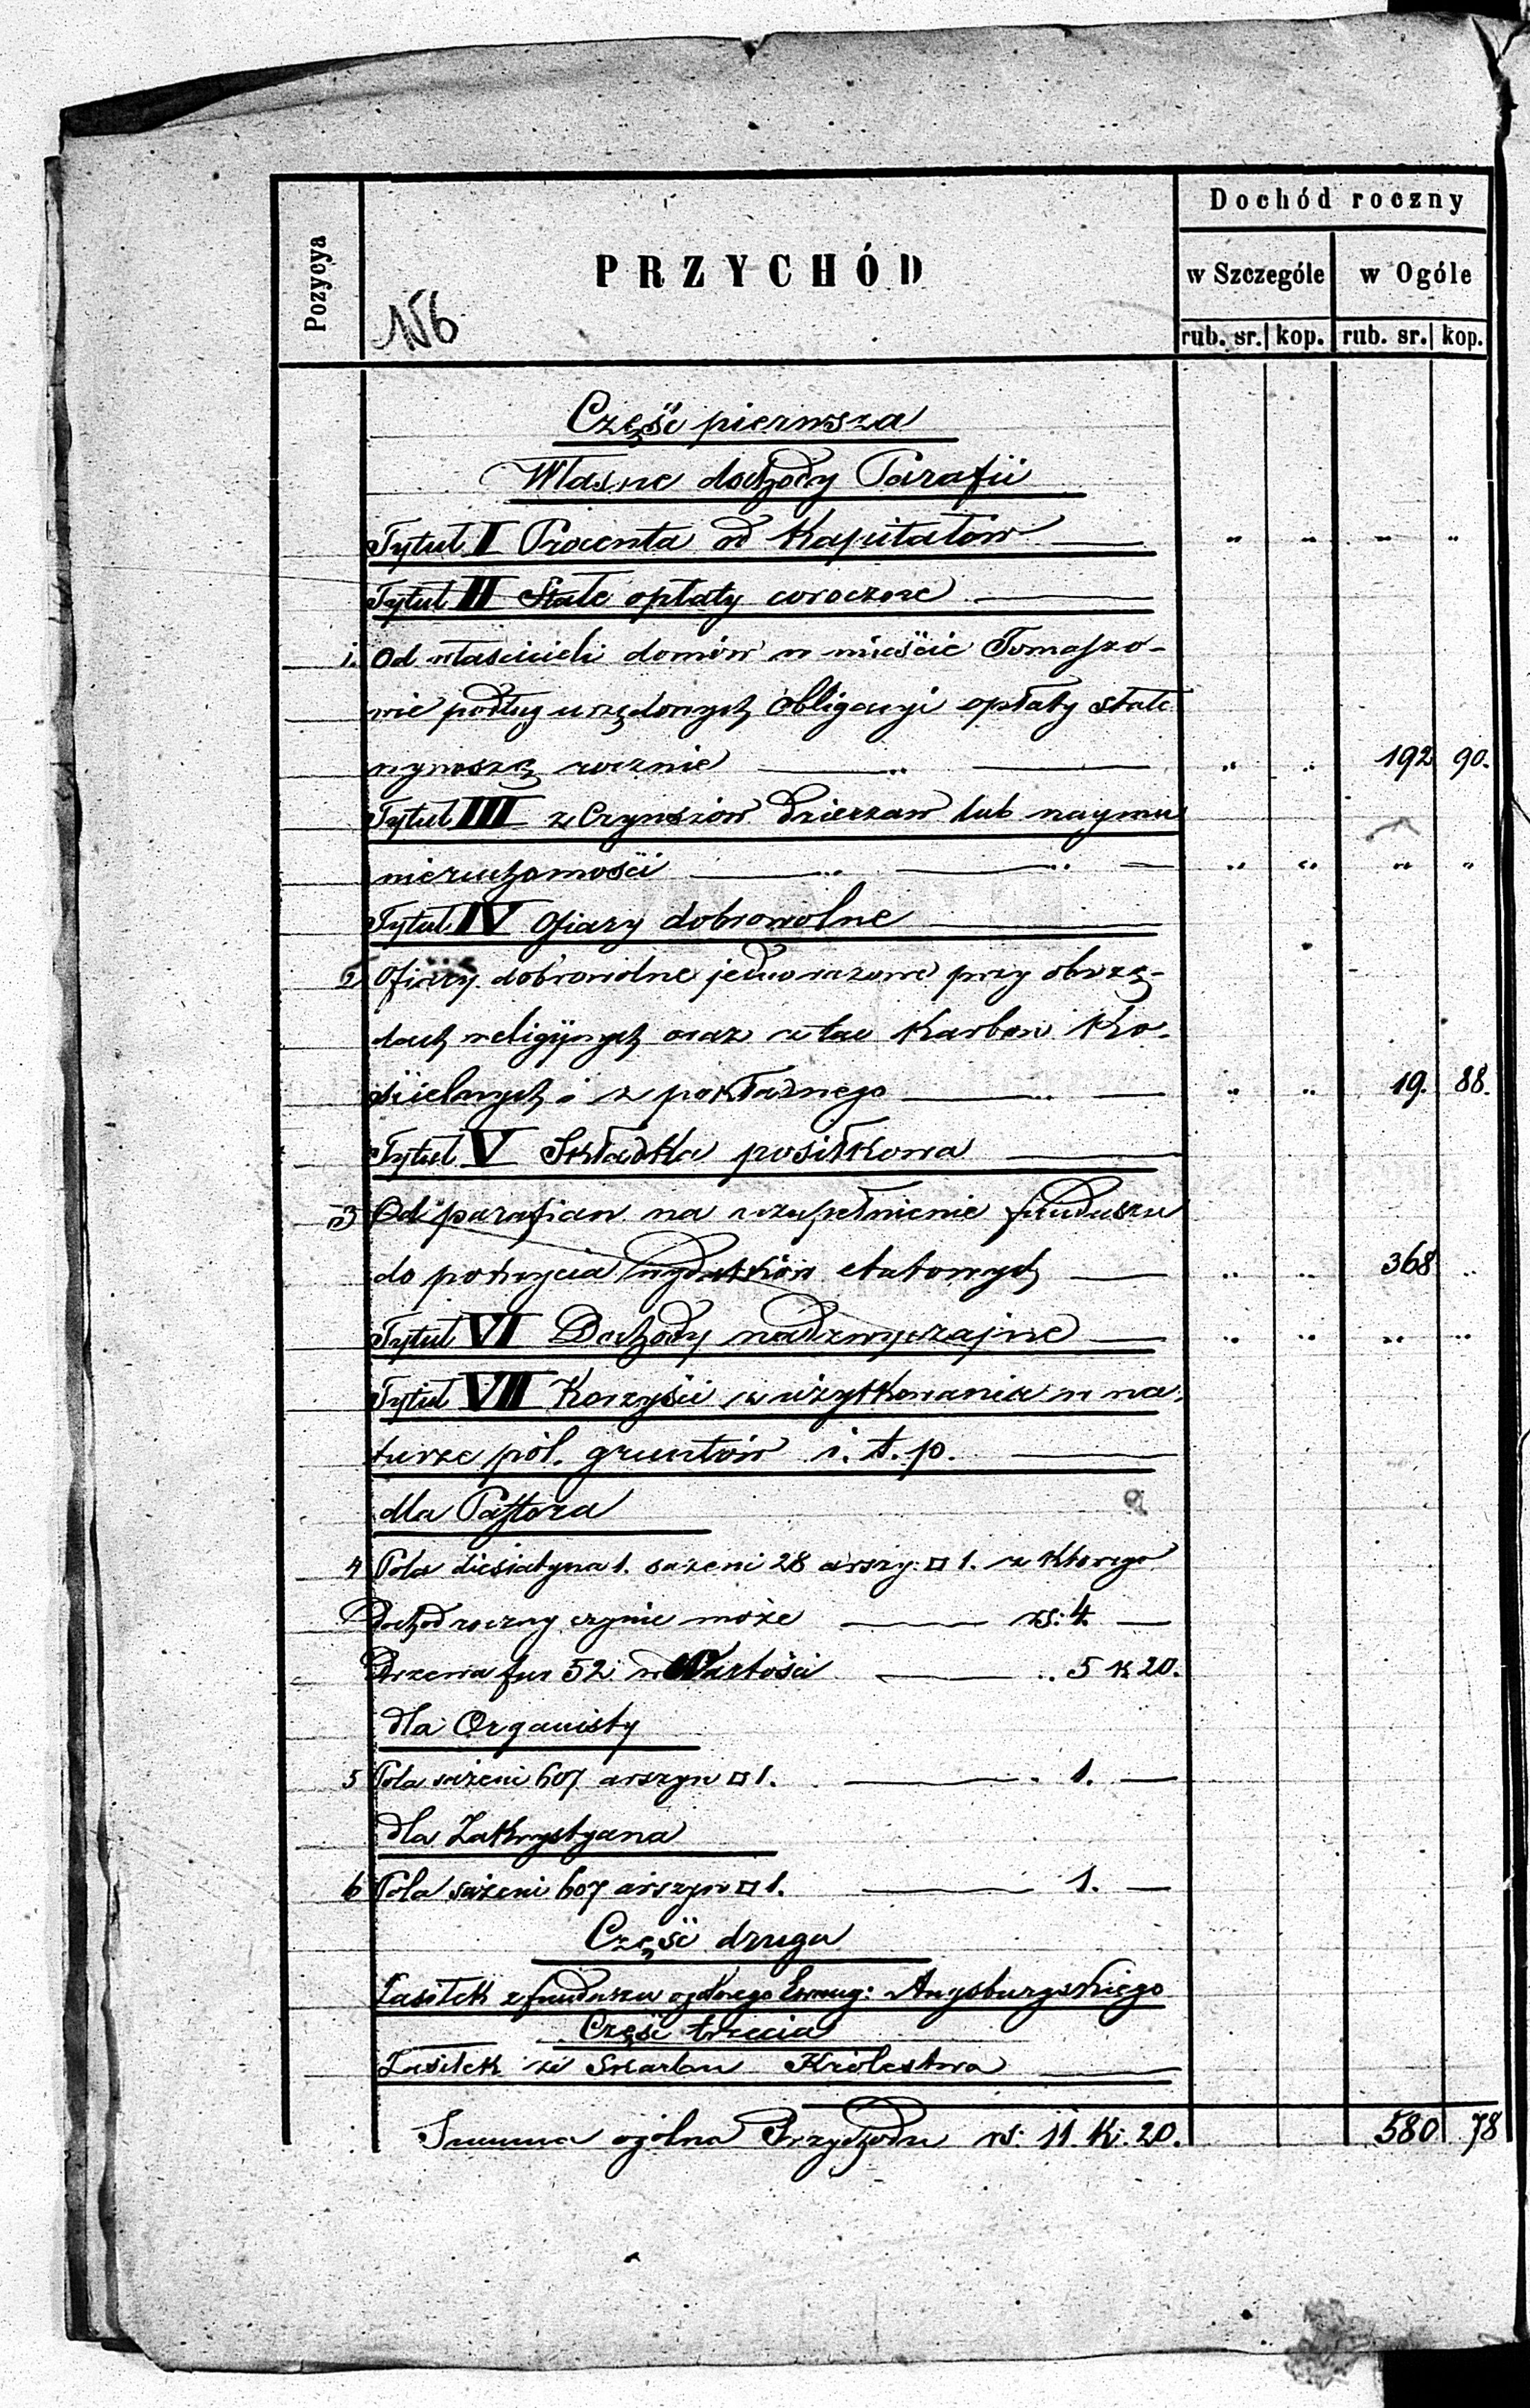 Pozycya
PRZYCHÓD
Dochód roczny
w Szczególe
w Ogóle
rub. sr. kop. rub. sr. kop.
156
Część pierwsza
Własne dochody Parafii
Tytuł I Procenta od Kapitałów „ „ „ „
Tytuł II Stałe opłaty coroczne
1. Od właścicieli domów w mieście Tomaszo-
wie podług urzędowych obligacyi opłaty stałe
wynoszą rocznie „ „ 192 90.
Tytuł III z Czynszów Dzierzaw lub naymu
nieruchomości „ „ „ „
Tytuł IV Ofiary dobrowolne
2 Ofiary dobrowolne jednorazowe przy obrzę-
dach religijnych oraz z tac Karbon Ko-
ścielnych i z pokładnego „ „ 19. 88.
Tytuł V Składka posiłkowa
3 Od parafian na uzupełnienie funduszu
do pokrycia wydatków etatowych „ „ 368 „
Tytuł VI Dochody nadzwyczajne „ „ „ „
Tytuł VII Korzyści z użytkowania w na-
turze pól. gruntów i. t. p.
dla Pastora
4 Pola diesiatyna 1. sażeni 28 arszy: □ 1. z którego
Dochod roczny czynić może rs: 4. —
Drzewa fur 52 w Wartości „ 5 k 20.
dla Organisty
5 Pola sażeni 607 arszyn □ 1. „ 1. —
dla Zakrystyana
6 Pola sażeni 607 arszyn □ 1. 1. —
Część druga
Zasiłek z funduszu ogólnego Ewang: Augsburgskiego
Część trzecia
Zasiłek ze Skarbu Królestwa
Summa ogólna Przychodu rs: 11. K. 20. 580 78